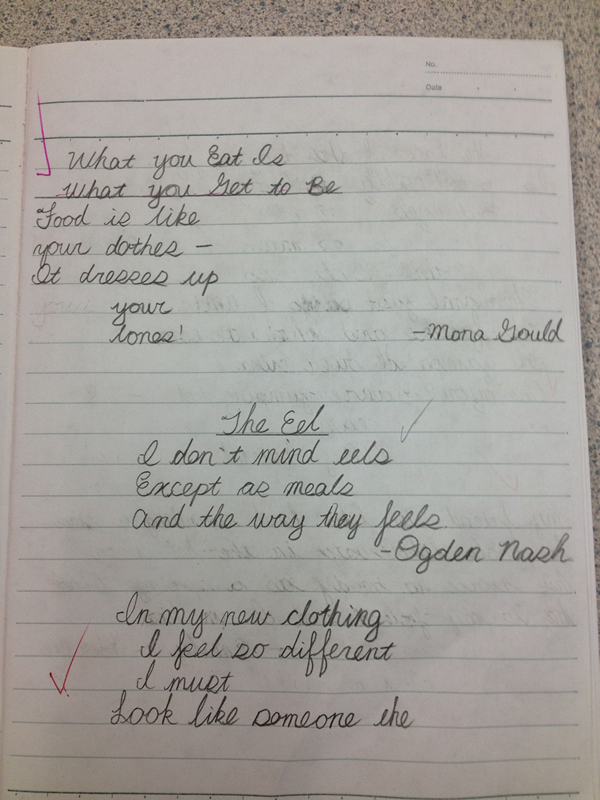 No.
Date
What you Eat Is
What you Get to Be
Food is like
your clothes -
It dresses up
your
bones!
- Mona Gould
The Eel
I don't mind eels
Except as meals
and the way they feels.
- Ogden Nash
In my new clothing
I feel so different
I must
Look like someone else